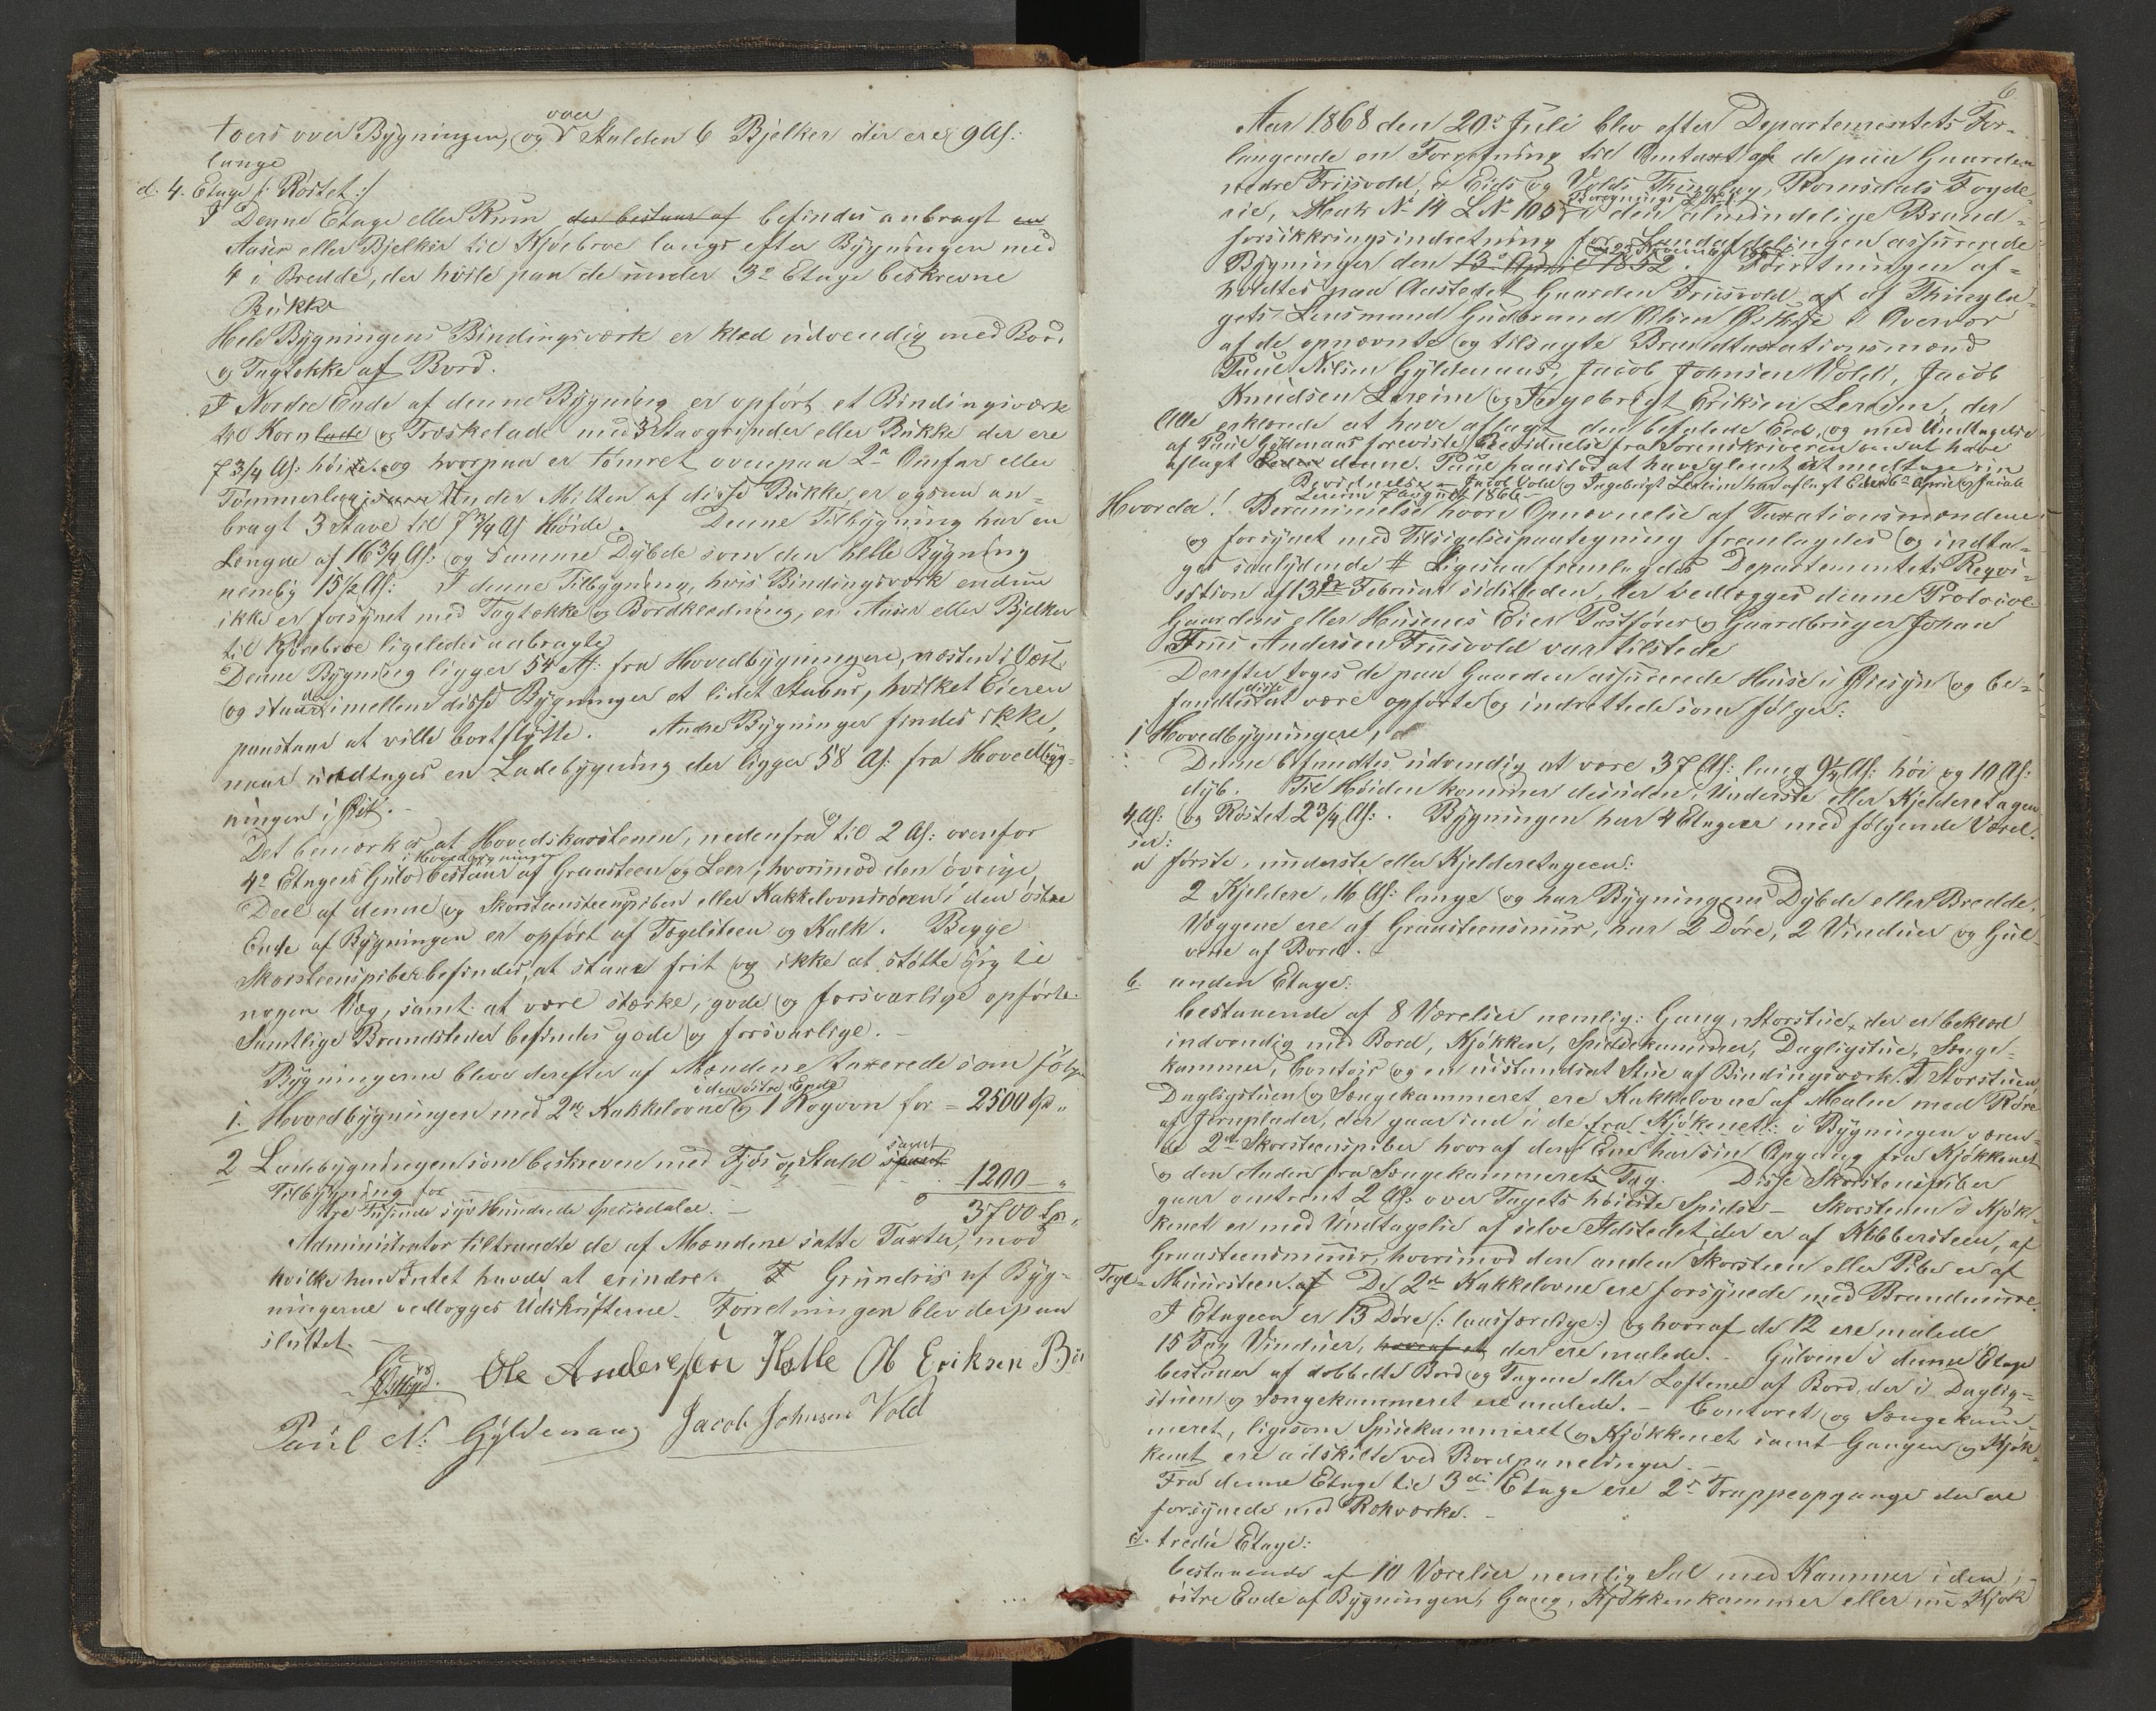 tvers over Bygningen, og over Stalden 6 Bjelker der ere 9 Al:
lange
d. 4. Etage /: Røstet :/
I Denne Etage eller Rum der bestaar af befindes anbragt en
Aaser eller Bjelker til Kjørebroe langs efter Bygningen med
4 i Bredde, der hvile paa de under 3die Etage beskrevne
Bukke
Hele Bygningens Bindingsværk er klæd udvendig med Bord
og Tagtække af Bord.
I Nordre Ende af denne Bygning er opført et Bindingsværk
til Kornlade og Træskelade med 3 Stavgrinder eller Bukke der ere
7 3/4 Al: høie og hvorpaa er tømret ovenpaa 2de Omfar eller
Tømmerlag. Under Midten af disse Bukke er ogsaa an-
bragt 3 Stave til 7 3/4 Al Høide. Denne Tilbygning har en
Længde af 16 3/4 Al: og samme Dybde som den hele Bygning
nemlig 15 1/2 Al: I denne Tilbygning, hvis Bindingsværk endnu
ikke er forsynet med Tagtække og Bordklædning, er Aaser eller Bjelker
til Kjørebroe ligeledes anbragte
Denne Bygning ligger 54 Al: fra Hovedbygningen, næsten i Vest
og staar imellem disse Bygninger et lidet Stabur, hvilket Eieren
paastaar at ville bortflytte. Andre Bygninger findes ikke,
naar undtages en Ladebygning der ligger 58 Al: fra Hovedbyg-
ningen i Øst. -
Det bemærkes, at Hovedskorstenen, nedenfra og til 2 Al: ovenfor
4de Etages Gulv i Hovedbygningen bestaar af Graasteen og Leer, hvorimod den øvrige
Deel af denne og Skorsteenspiben eller Kakkelovnsrøren i den østre
Ende af Bygningen er opført af Teglsteen og Kalk. Begge
Skorsteenspiber befindes, at staae frit og ikke at støtte sig til
nogen Væg, samt at være stærke, gode og forsvarlige opførte.
Samtlige Brandsteder befindes gode og forsvarlige. -
Bygningerne bleve derefter af Mændene taxerede som følger
1. Hovedbygningen med 2de Kakkelovne og 1 Bagovn i den østre Ende for = 2500 Sp "
2 Ladebygningen som beskreven med Fjøs og Stald samt
Tilbygning for - 1200 - "
tre Tusinde syv Hundrede Speciedaler. - 3700 Sp. "
Administrator tiltraadte de af Mændene satte Taxter, mod
hvilke han Intet havde at erindre. Grundris af Byg-
ningerne vedlægges Udskrifterne. Forretningen blev derpaa
sluttet. -
Ole Andersen Hatle Ob Eriksen Bø
Paul N: Gyldenaas Jacob Johnsen Vold
6
Aar 1868 den 20de Juli blev efter Departementets For-
langende en Forretning til Omtaxt af de paa Gaarden
nedre Friisvold, i Eids og Volds Thinglag, Romsdals Fogde-
rie, Matr No 14 L No 105 i den almindelige Brand-
forsikkringsindretning for Landafdelingen assurerede
Bygninger den 13de April 1852. Forretningen af-
holdtes paa Aastedet Gaarden Friisvold af af Thingla-
gets Lensmand Gudbrand Olsen i Overvær
af de opnævnte og tilsagte Brandtaxationsmænd
Paul Nilsen Gyldenaas, Jacob Johnsen Vold, Jacob
Knudsen Lereim og Ingebrigt Eriksen Lereim, der
Alle erklærede at have aflagt den befalede Eed, og med Undtagelse
af Paul Gyldenaas foreviste Bevidnelse fra Sorenskriveren om at have
aflagt denne. Paul paastod at have glemt at medtage sin
Bevidnelse. - Jacob Vold og Ingebrigt Lereim har aflagt Eden April og Jacob
Lereim 7 August 1866 -
Hvorda! Berammelse hvori Opnævnelse af Taxationsmændene
og forsynet med Tilsigelsespaategning fremlagdes og indta-
ges saalydende # Ligesaa fremlagdes Departementets Reqvi-
sition af 13de Februar sidstleden, der vedlægges denne Protocol
Gaardens eller Husenes Eier Postfører og Gaardbruger Johan
Friis Andersen Friisvold var tilstede
Derefter toges de paa Gaarden assurerede Huse i Øiesyn og be-
fandtes disse at være opførte og indrettede som følger:
1 Hovedbygningen,
Denne befandtes udvendig at være 37 Al: lang 9 1/2 Al: høi og 10 Al:
dyb. Til Høiden kommer desuden, Underste eller Kjelderetagen
4 Al: og Røstet 2 3/4 Al: . Bygningen har 4 Etager med følgende Værel-
ser:
a første, underste eller Kjelderetagen:
2 Kjeldere, 16 Al: lange og har Bygningens Dybde eller Bredde.
Væggene ere af Graasteensmuur, har 2 Døre, 2 Vinduer og Gul-
vene af Bord.
b. anden Etage:
bestaaende af 8 Værelser nemlig: Gang, Storstue, der er beklæd
indvendig med Bord, Kjøkken, Spiisekammer, Dagligstue, Senge-
kammer, Contoir og en uistandsat Stue af Bindingsværk. I Storstuen
Dagligstuen og Sengekammeret ere Kakkelovne af Malm med Røre
af Jernplader, der gaar ind i de fra Kjøkkenet i Bygningen væren-
de 2de Skorsteenspiber hvoraf den Ene har sin Opgang fra Kjøkkenet
og den Anden fra Sengekammerets Tag. Disse Skorsteenspiber
gaar omtrent 2 Al: over Tagets høieste Spidse - Skorstenen i Kjøk-
kenet er med Undtagelse af selve Ildstedet, der er af Klebbersteen, af
Graasteensmuur, hvorimod den anden Skorsteen eller Pibe er af
Tegl- Muursteen. De 2de Kakkelovne ere forsynede med Brandmure.
I Etagen er 13 Døre (: laasfærdige :) og hvoraf de 12 ere malede
15 Fag Vinduer, hvoraf et der ere malede. - Gulvene i denne Etage
bestaaer af dobbelte Bord og Tagene eller Loftene af Bord, der i Daglig-
stuen og Sengekammeret ere malede. - Contoret og Sengekam-
meret, ligesom Spiisekammeret og Kjøkkenet samt Gangen og Kjøk-
kenet ere adskilte ved Bordpanelinger. -
Fra denne Etage til 3die Etage ere 2de Trappeopgange der ere
forsynede med Rækværke. -
c. tredie Etage:
bestaaende af 10 Værelser nemlig Sal med Kammer i den
østre Ende af Bygningen, Gang, Kjøkkenkammer eller Kjøk